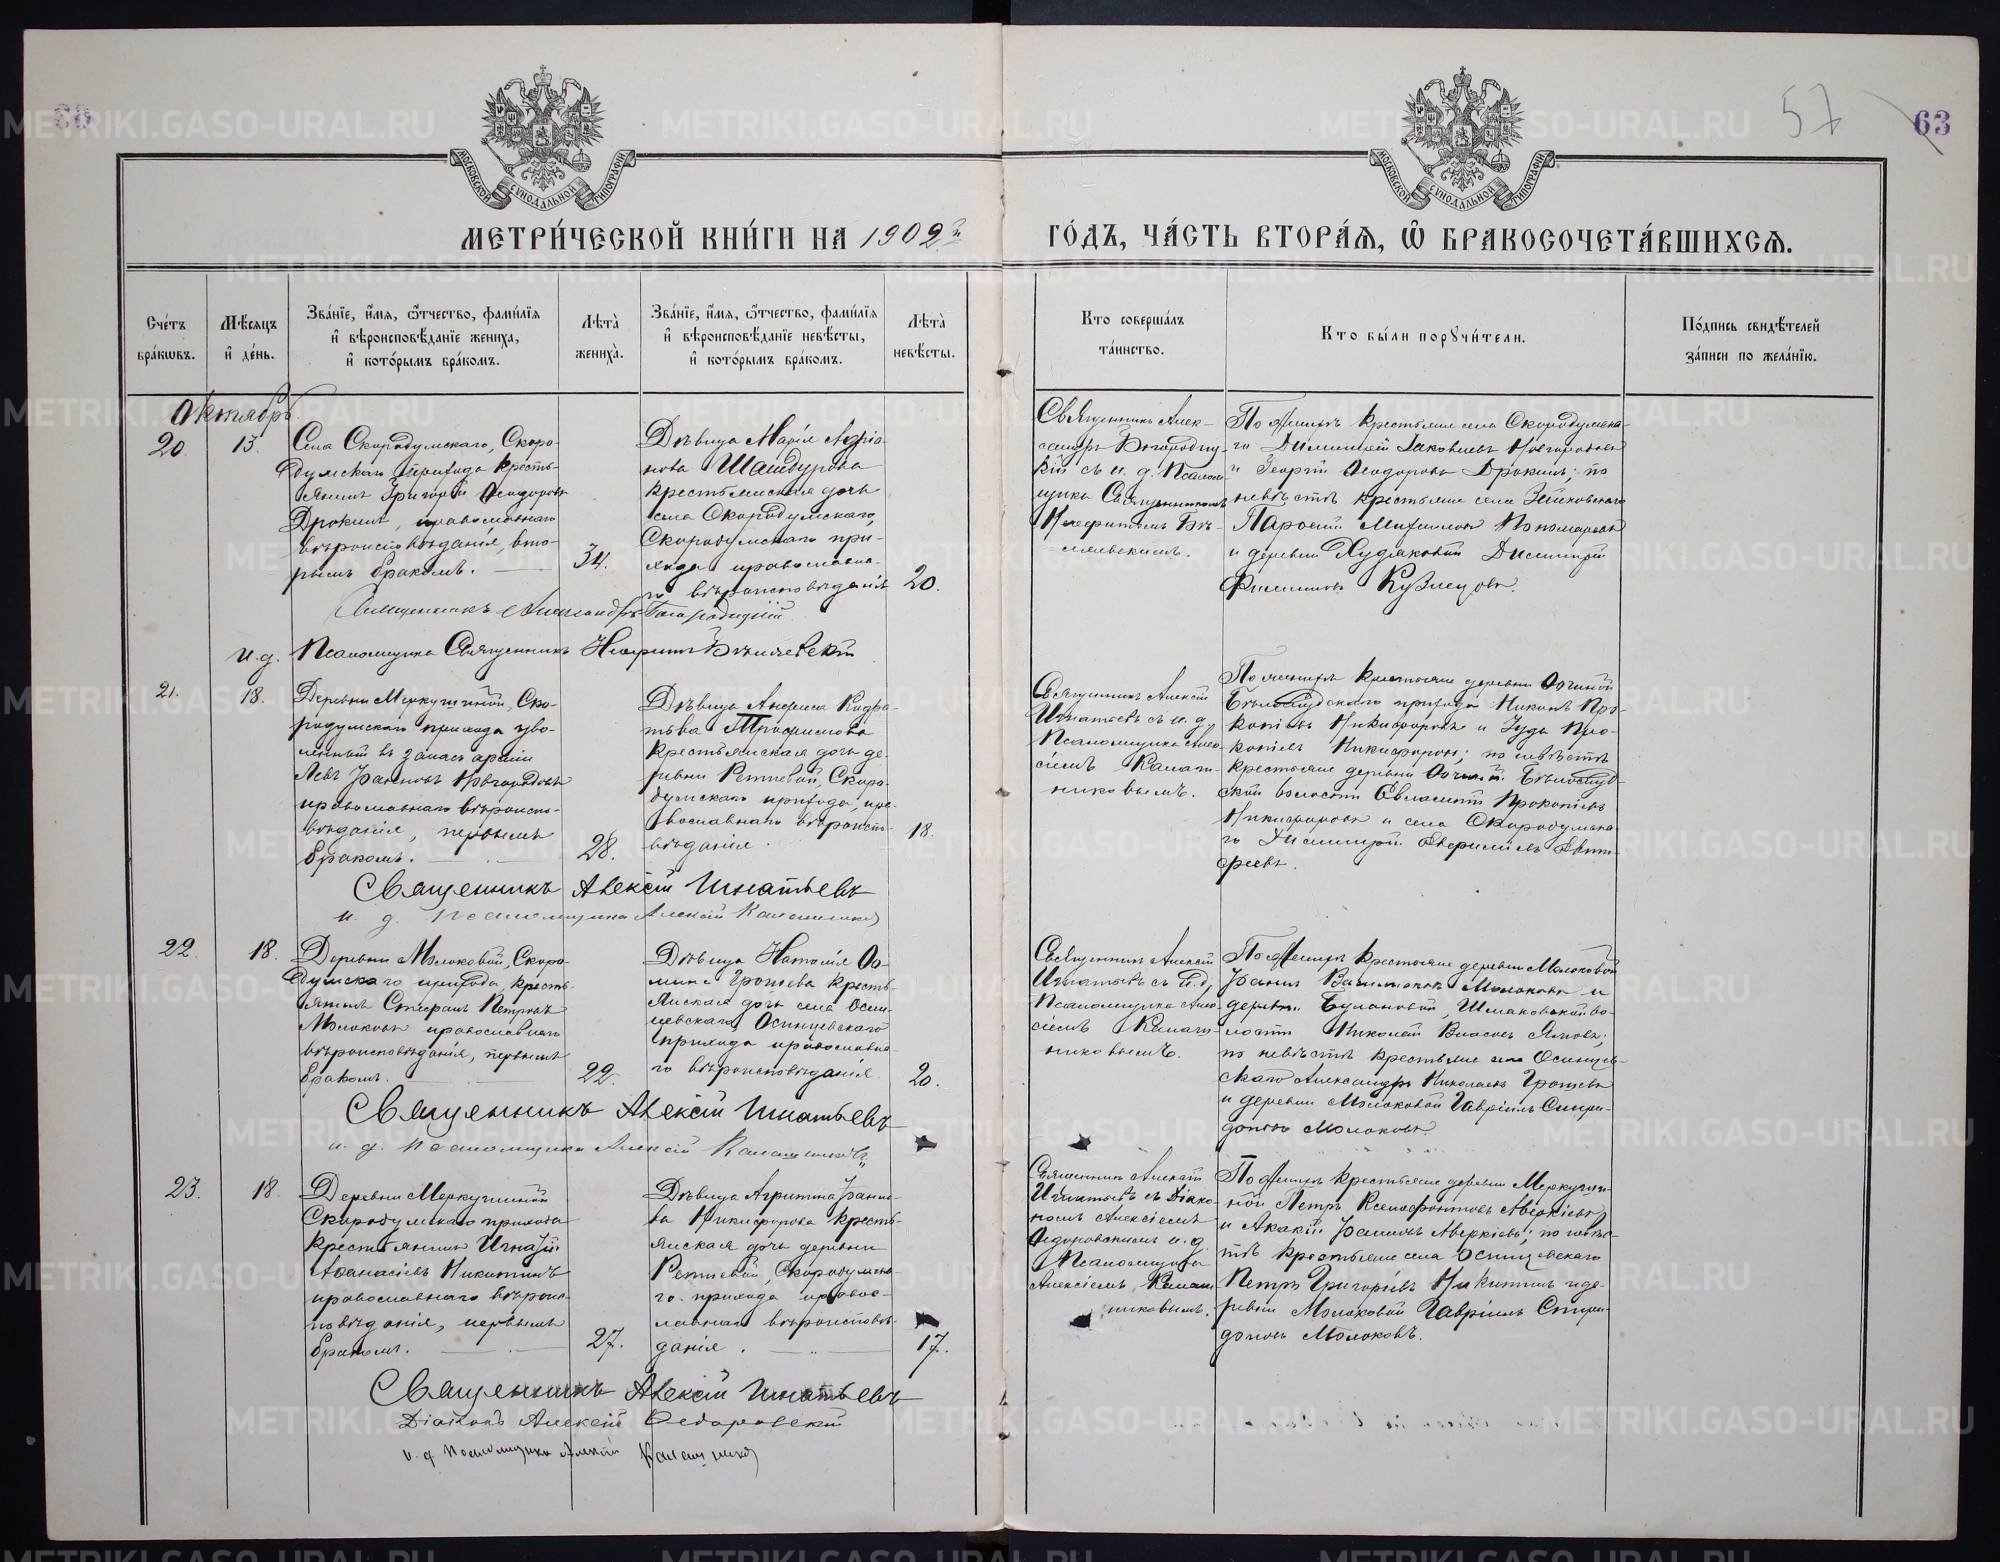 57
63
МОСКОВСКОЙ СѴНОДАЛЬНОЙ ТИПОГРАФІИ
МОСКОВСКОЙ СѴНОДАЛЬНОЙ ТИПОГРАФІИ
МЕТРИ́ЧЕСКОЙ КНИ́ГИ НА 1902й
ГО́ДЪ, ЧА́СТЬ ВТОРА́Ѧ, Ѽ БРАКОСОЧЕТА́ВШИХСѦ.
Сче́тъ
бра́кѡвъ.
Мѣ́сяцъ
и҆ де́нь.
Зва́нїе, и҆́мѧ, ѻ҆́тчество, фами́лїѧ
и҆ вѣроисповѣ́данїе жениха̀,
и҆ кото́рымъ бра́комъ.
Лѣта̀
жениха̀.
Зва́нїе, и҆́мѧ, ѻ҆́тчество, фами́лїѧ
и҆ вѣроисповѣ́данїе невѣ́сты,
и҆ кото́рымъ бра́комъ.
Лѣта̀
невѣ́сты.
Кто соверша́лъ
та́инство.
Кто бы́ли порꙋчи́тели.
По́дпись свидѣ́телей
за́писи по жела́нїю.
Октябрь
20.
13.
Села Скородумскаго, Скоро-
думскаго прихода кресть-
янинъ Григорій Ѳеодоровъ
Дрокинъ, православнаго
вѣроисповѣданія, вто-
рымъ бракомъ.
34.
Дѣвица Марія Адріа-
нова Шашдурова
крестьянская дочь
села Скородумскаго,
Скородумскаго при-
хода православна-
го вѣроисповѣданія
20.
Священникъ Алек-
сандръ Богородиц-
кій съ и. д. Псалом-
щика Священникомъ
По женихѣ крестьяне села Скородумска-
го Димитрій Іаковлевъ Новгородовъ
и Георгій Ѳеодоровъ Дрокинъ; по
невѣстѣ крестьяне села
и деревни Худяковой Димитрій
Филипповъ Кузнецовъ.
Священникъ Александръ Богородицкій.
и. д. Псаломщика Священникъ
21.
18.
Деревни Меркушиной, Ско-
родумскаго прихода уво-
ленный въ запасъ арміи
Левъ Іоанновъ Новгородовъ
православнаго вѣроиспо-
вѣданія, первымъ
бракомъ.
28.
Дѣвица Анфиса Кодра-
тьева Трофимова
крестьянская дочь де-
ревни Ретневой, Скоро-
думскаго прихода, пра-
вославнаго вѣроиспо-
вѣданія.
18.
Священникъ Алексій
Игнатьевъ съ и. д.
Псаломщика Алек-
сіемъ Калаш-
никовымъ.
По женихѣ крестьяне деревни
Бѣлослудскаго прихода Никонъ Про-
копіевъ Никифоровъ и Іуда Про-
копіевъ Никифоровъ; по невѣстѣ
крестьяне деревни
ской волости Евлампій Прокопіевъ
Никифоровъ и села Скородумска-
го Димитрій
Священникъ Алексій Игнатьевъ
и. д. псаломщика Алексій Калашниковъ
22.
18.
Деревни Молоковой, Скоро-
думскаго прихода, кресть-
янинъ Стефанъ Петровъ
Молоковъ православнаго
вѣроисповѣданія, первымъ
бракомъ.
22.
Дѣвица Наталія Ѳо-
мина Грошева кресть-
янская дочь села Осин-
цевскаго Осинцевскаго
прихода православна-
го вѣроисповѣданія.
20.
Священникъ Алексій
Игнатьевъ съ и. д.
Псаломщика Алек-
сіемъ Калаш-
никовымъ.
По женихѣ крестьяне деревни Молоковой
Іоаннъ Молоковъ и
деревни Булановой, Шмаковской во-
лости Николай Власовъ
по невѣстѣ крестьяне села Осинцев-
скаго Александръ Николаевъ Грошевъ
и деревни Молоковой Гавріилъ Спири-
доновъ Молоковъ.
Священникъ Алексій Игнатьевъ
и. д. псаломщика Алексій Калашниковъ
23.
18.
Деревни Меркушиной
Скородумскаго прихода
крестьянинъ Игнатій
Аѳанасіевъ Никитинъ
православнаго вѣроис-
повѣданія, первымъ
бракомъ.
27.
Дѣвица Агриппина Іоанно-
ва Никифорова кресть-
янская дочь деревни
Ретневой, Скородумска-
го прихода правос-
лавнаго вѣроисповѣ-
данія.
17.
Священникъ Алексій
Игнатьевъ съ Діако-
номъ Алексіемъ
Ѳедоровскимъ и. д.
Псаломщика
Алексіемъ Калаш-
никовымъ.
По женихѣ крестьяне деревни Меркуши-
ной Петръ Ксенофонтовъ Аверкіевъ
и Акакій Іоанновъ Аверкіевъ; по невѣс-
тѣ крестьяне села Осинцевскаго
Петръ Григорьевъ Никитинъ и де-
ревни Молоковой Гавріилъ Спири-
доновъ Молоковъ.
Священникъ Алексій Игнатьевъ
Діаконъ Алексій Ѳедоровскій
и. д. псаломщика Алексій Калашниковъ
METRIKI.GASO-URAL.RU